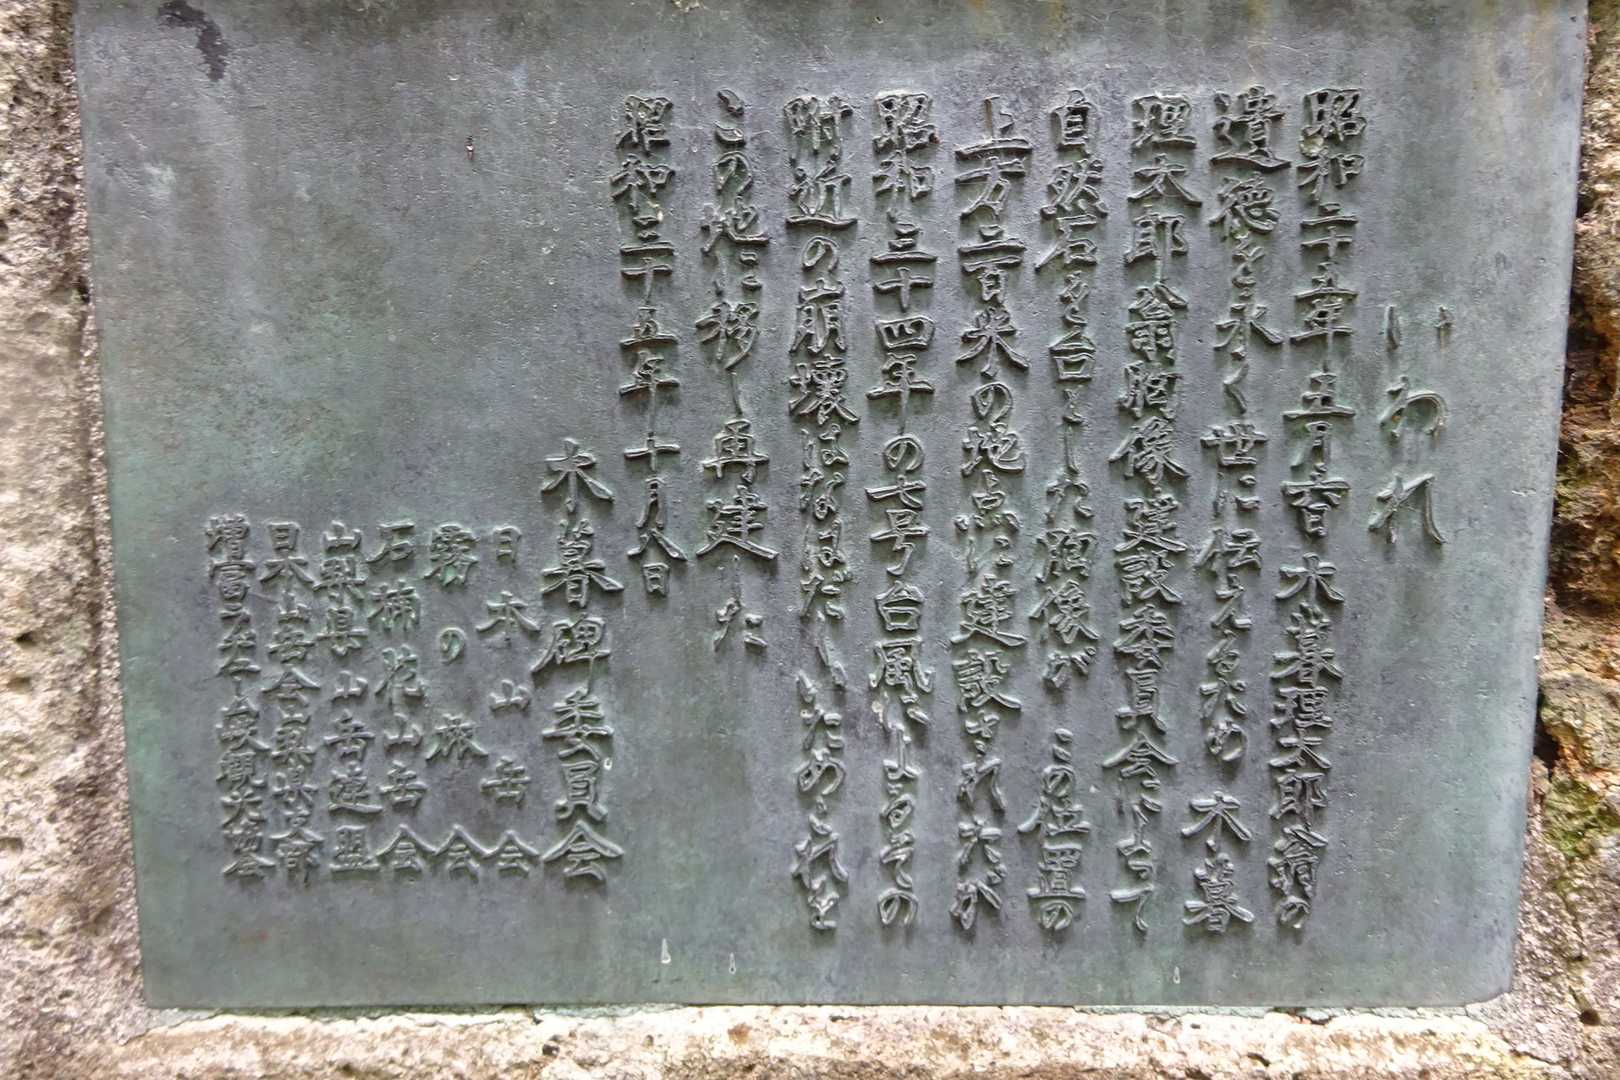 いわれ
昭和二十八年五月六日木暮理太郎翁の
遺徳を永く世に伝えるため 木暮
理太郎翁胸像建設委員会によって
自然石を台とした胸像が この位置の
上方二百米の地点に建設されたが
昭和三十四年の七号台風によるその
附近の崩壊はなはだしいためこれを
この地に移し再建した
昭和三十五年十月八日
木暮碑委員会
日本山岳会
霧の旅会
石楠花山岳会
山梨県山岳連盟
日本山岳会山梨県支部
増富ラジウム峡観光協会